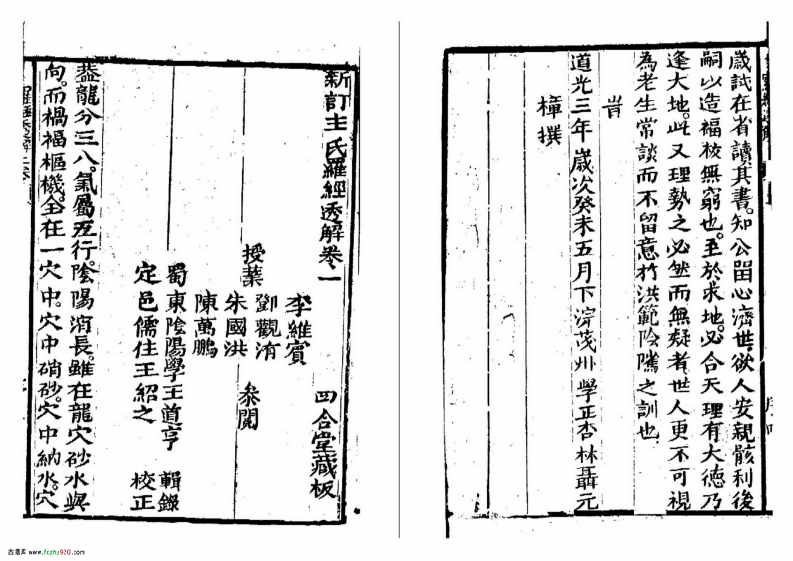 歲試在省讀其書。知公留心濟世。欲人安親骸利後
嗣以造福校無窮也。至於求地。必合天理有大德乃
逢大地。此又理勢之必然而無疑者世人更不可視
為老生常談而不留意於洪範陰騭之訓也
旹
道光三年歲次癸未五月下浣茂州學正杏林聶元
樟撰
新訂王氏羅經透解卷一
四合堂藏板
李維賓
授業 鄧觀洧
朱國洪 叅閱
陳萬鵬
蜀東陰陽學王道亨 輯錄
定邑儒住王紹之 校正
盖龍分三八。氣屬五行。陰陽消長。雖在龍穴砂水與
向。而禍福樞機。全在一穴中。穴中硝砂。穴中納水。穴
古易库 www.fczhu920.com